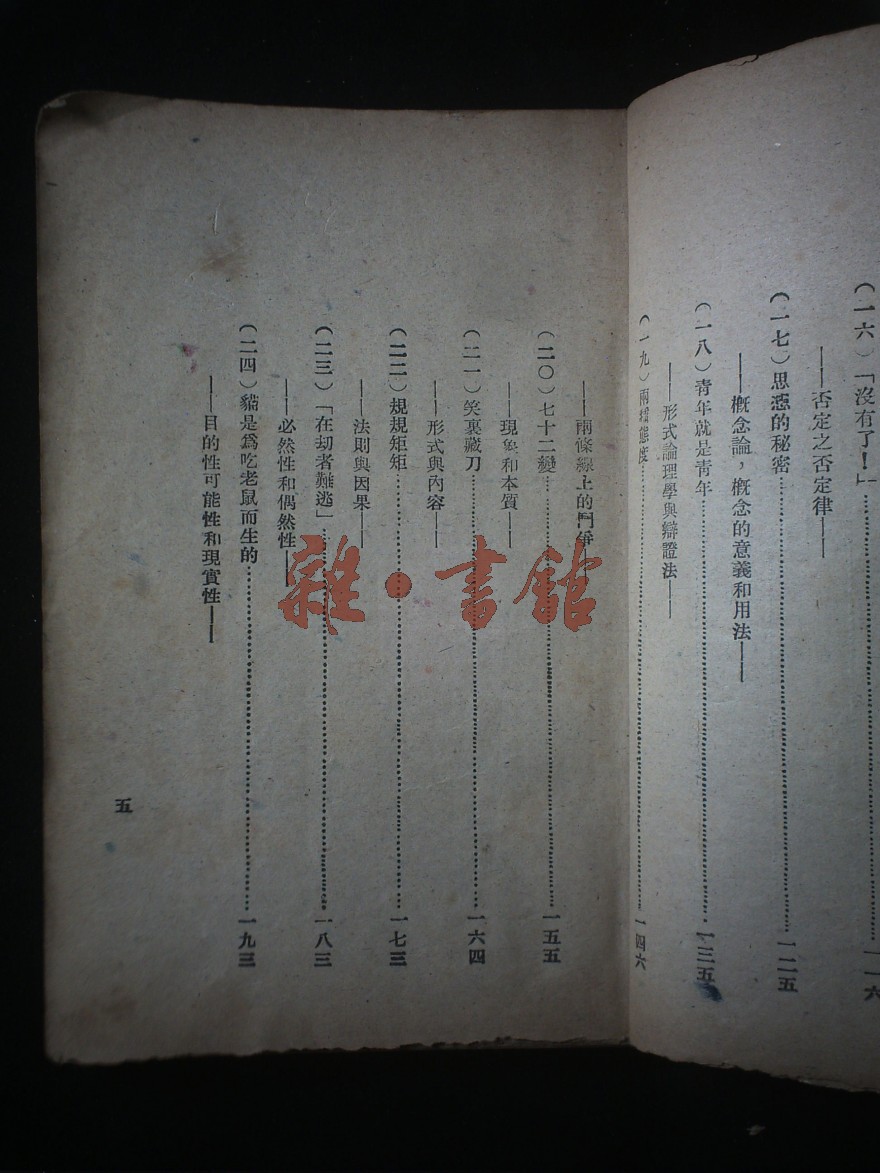 (一六)「沒有了!」……一一六
——否定之否定律——
(一七)思惑的秘密……一二五
——概念論,概念的意義和用法——
(一八)青年就是青年……一三五
——形式論理學與辯證法——
(一九)兩種態度……一四六
——兩條線上的鬥爭
(二〇)七十二變……一五五
——現象和本質——
(二一)笑裏藏刀……一六四
——形式與內容——
(二二)規規矩矩……一七三
——法則與因果——
(二三)「在劫者難逃」……一八三
——必然性和偶然性——
(二四)貓是爲吃老鼠而生的……一九三
——目的性可能性和現實性——
五
雜·書館